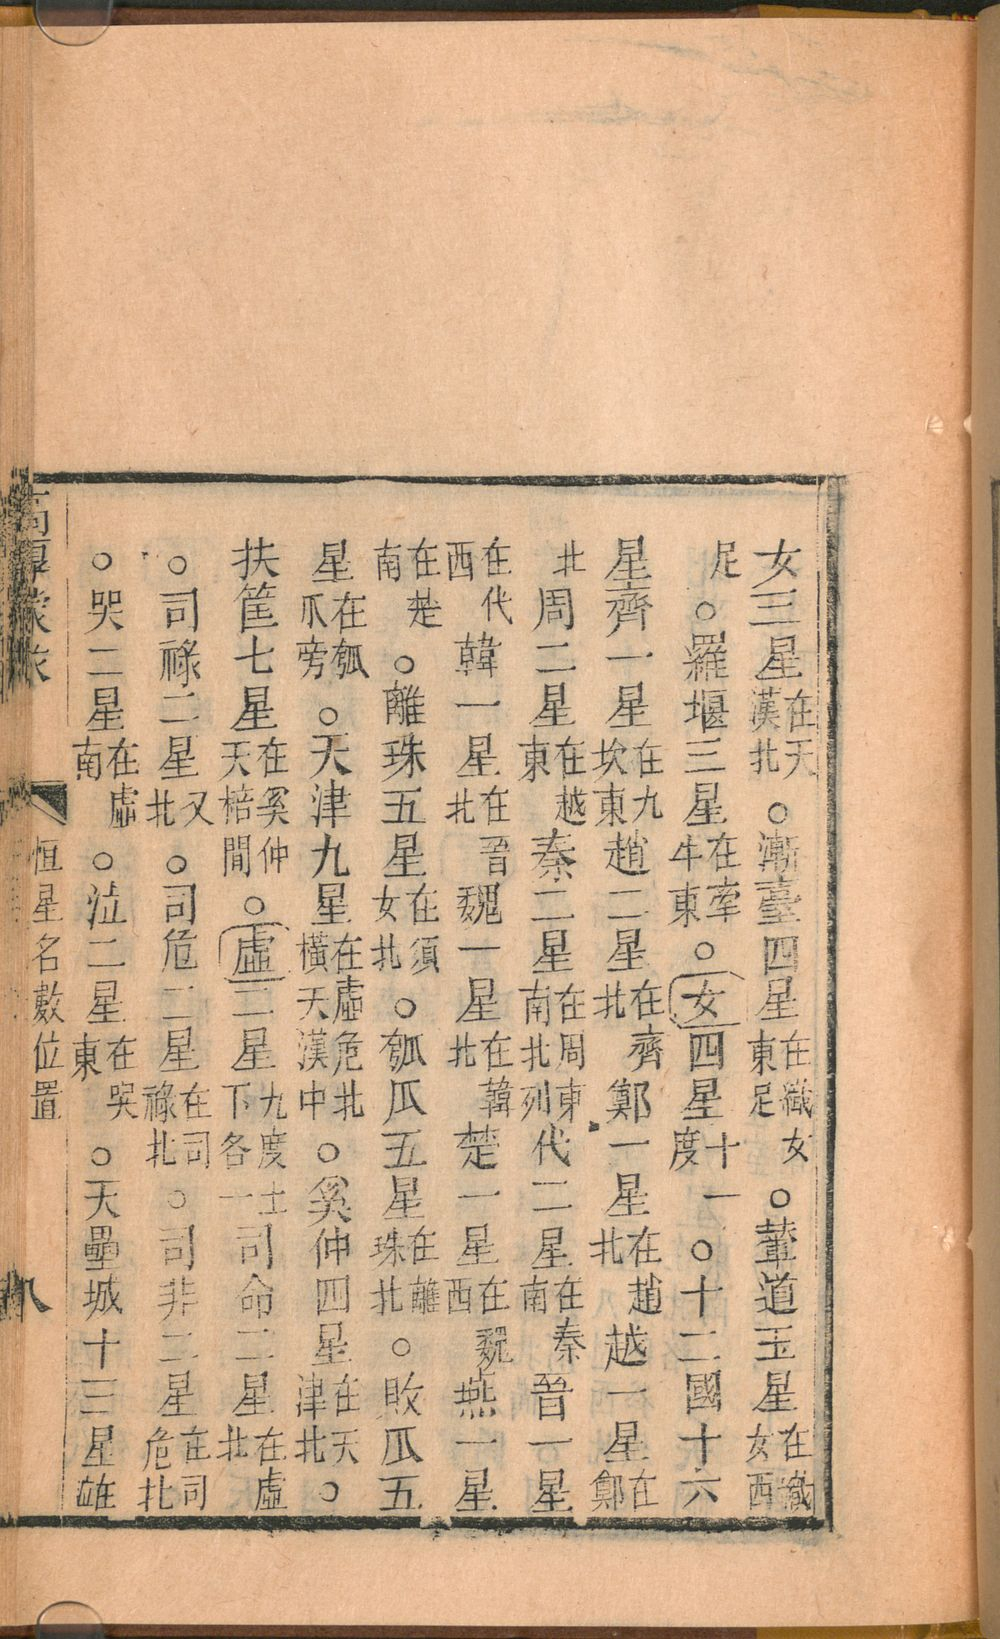 女三星在天漢北○漸臺四星在織女東足○輦道玉星在織女西
足○羅堰三星在牽牛東○女四星十一度○十二國十六
星齊一星在九坎東趙二星在齊北鄭一星在趙北越一星在鄭
北周二星在越東秦二星在周東南北列代二星在秦南晉一星
在代西韓一星在晉北魏一星在韓北楚一星在魏西燕一星
在楚南○離珠五星在須女北○瓠瓜五星在離珠北○敗瓜五
星在瓠瓜旁○天津九星在虛危北橫天漢中○奚仲四星在天津北○
扶筐七星在奚仲天棓間○虛二星九度士下各一司命二星在虛北
○司祿二星又北○司危二星在司祿北○司非二星在司危北
○哭二星在虛南○泣二星在哭東○天壘城十三星雄
高厚蒙求
恒星名數位置
八